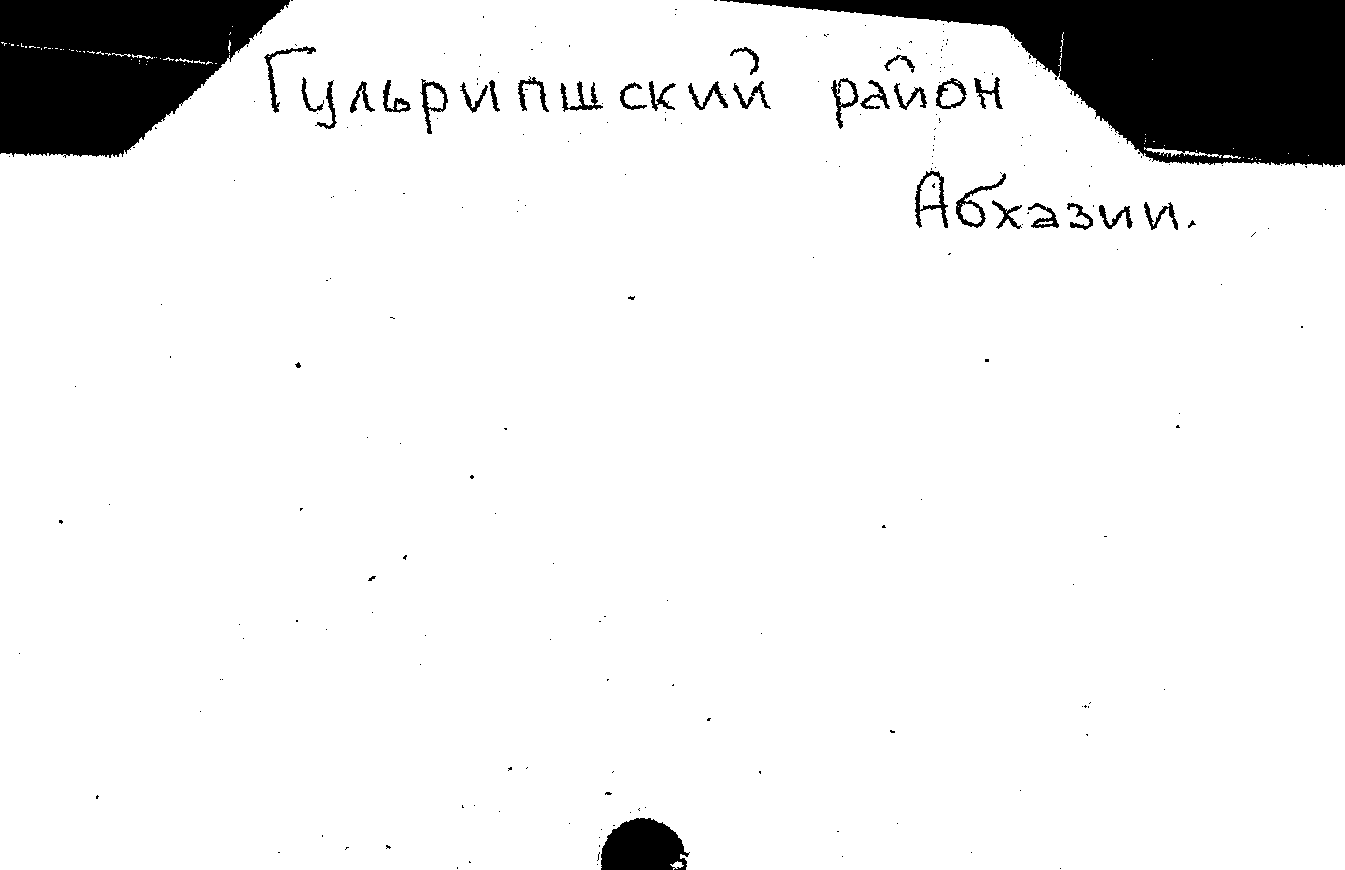 Гульрипшский район
Абхазии.